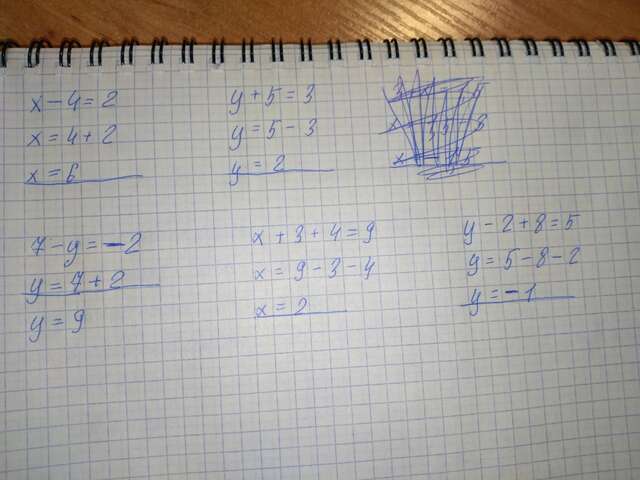 x - 4 = 2
x = 4 + 2
x = 6
y + 5 = 3
y = 5 - 3
y = 2
7 - y = -2
y = 7 + 2
y = 9
x + 3 + 4 = 9
x = 9 - 3 - 4
x = 2
y - 2 + 8 = 5
y = 5 - 8 - 2
y = -1